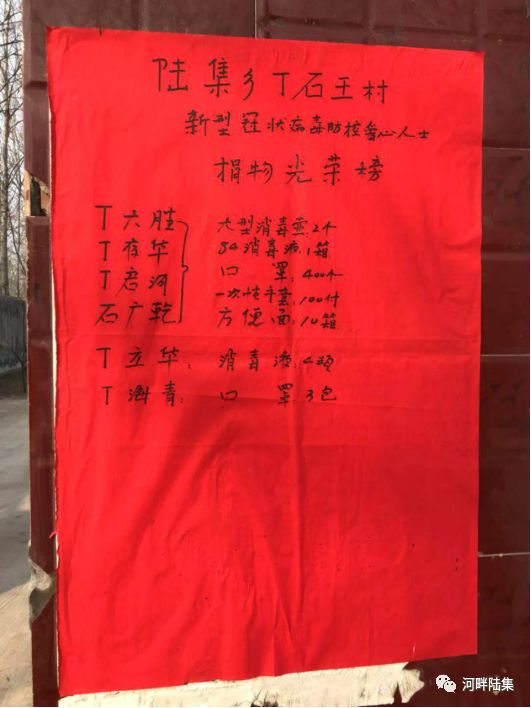 陆集乡丁石王村
新型冠状病毒防控爱心人士
捐物光荣榜
丁大胜 大型消毒壶:2个
丁存华 84消毒液:1箱
丁启河 口罩:400个
石广乾 一次性手套:100付
方便面:10箱
丁立华: 消毒液:4瓶
丁 青: 口罩:3包
河畔陆集